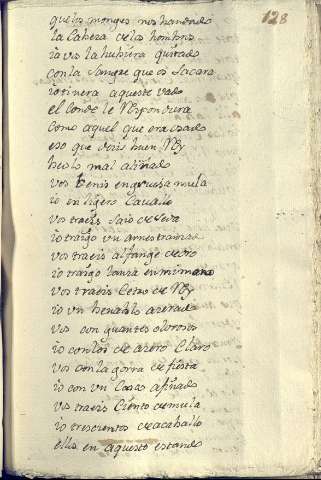 128
que los monges nos han dado
la Cabeza de los hombros
io vos la hubiera quitado
con la sangre que os sacara
io tinera aqueste vado
el Conde le Respondiera
como aquel que era osado
eso que decis buen Rey
beolo mal aliñado
vos benis en gruesa mula
io en ligero Cavallo
vos traeis saio de seda
io traigo un arnes tranzado
vos traeis alfange de oro
io traigo lanza en mi mano
vos traeis Cetro de Rey
io un benablo acerado
vos con guantes olorosos
io con los de azero Claro
vos con la gorra de fiesta
io con un Casco afinado
vos traeis Ciento de mula
io trescientos de acaballo
ellos en aquesto estando